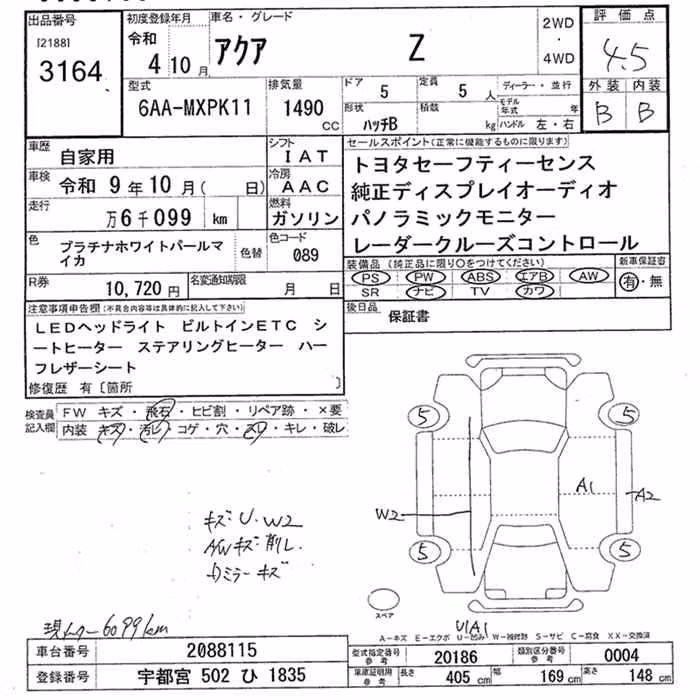 出品番号
[2188]
3164
初度登録年月
令和
4 10 月
車名・グレード
アクア Z
2WD
・
4WD
評価点
4.5
外装 内装
B B
型式
6AA-MXPK11
排気量
1490
CC
ドア
5
定員
5 人
形状
ハッチB
積数
kg
ディーラー・並行
モデル年式 年
ハンドル 左・右
車歴 自家用
シフト
IAT
車検 令和 9年10月( 日)
冷房
AAC
走行 万6千099 km
燃料
ガソリン
色 プラチナホワイトパールマイカ
色替
色コード
089
セールスポイント(正常に機能するものに限ります)
トヨタセーフティーセンス
純正ディスプレイオーディオ
パノラミックモニター
レーダークルーズコントロール
装備品(純正品に限り○をつけてください)
PS PW ABS エアB AW
SR ナビ TV カワ
新車保証書
有・無
R券 10,720 円
名変通知期限 月 日
後日品 保証書
注意事項申告欄(不具合内容等は具体的に記入して下さい)
LEDヘッドライト ビルトインETC シ
ートヒーター ステアリングヒーター ハー
フレザーシート
修復歴 有〔箇所 〕
検査員
記入欄
FW キズ・飛石・ヒビ割・リペア跡・×要
内装 キズ・汚レ・コゲ・穴・スレ・キレ・破レ
5 5
A1
A2
W2
5 5
キズ・U・W2
AWキズ・削レ
ミラーキズ
スペア
U1A1
6099km
A-キズ E-エクボ U-凹み W-補修跡 S-サビ C-腐食 XX-交換済
車台番号 2088115
登録番号 宇都宮 502 ひ 1835
型式指定番号
参考
20186
類別区分番号
参考
0004
車庫証明用
参考
長さ 405 cm 幅 169 cm 高さ 148 cm